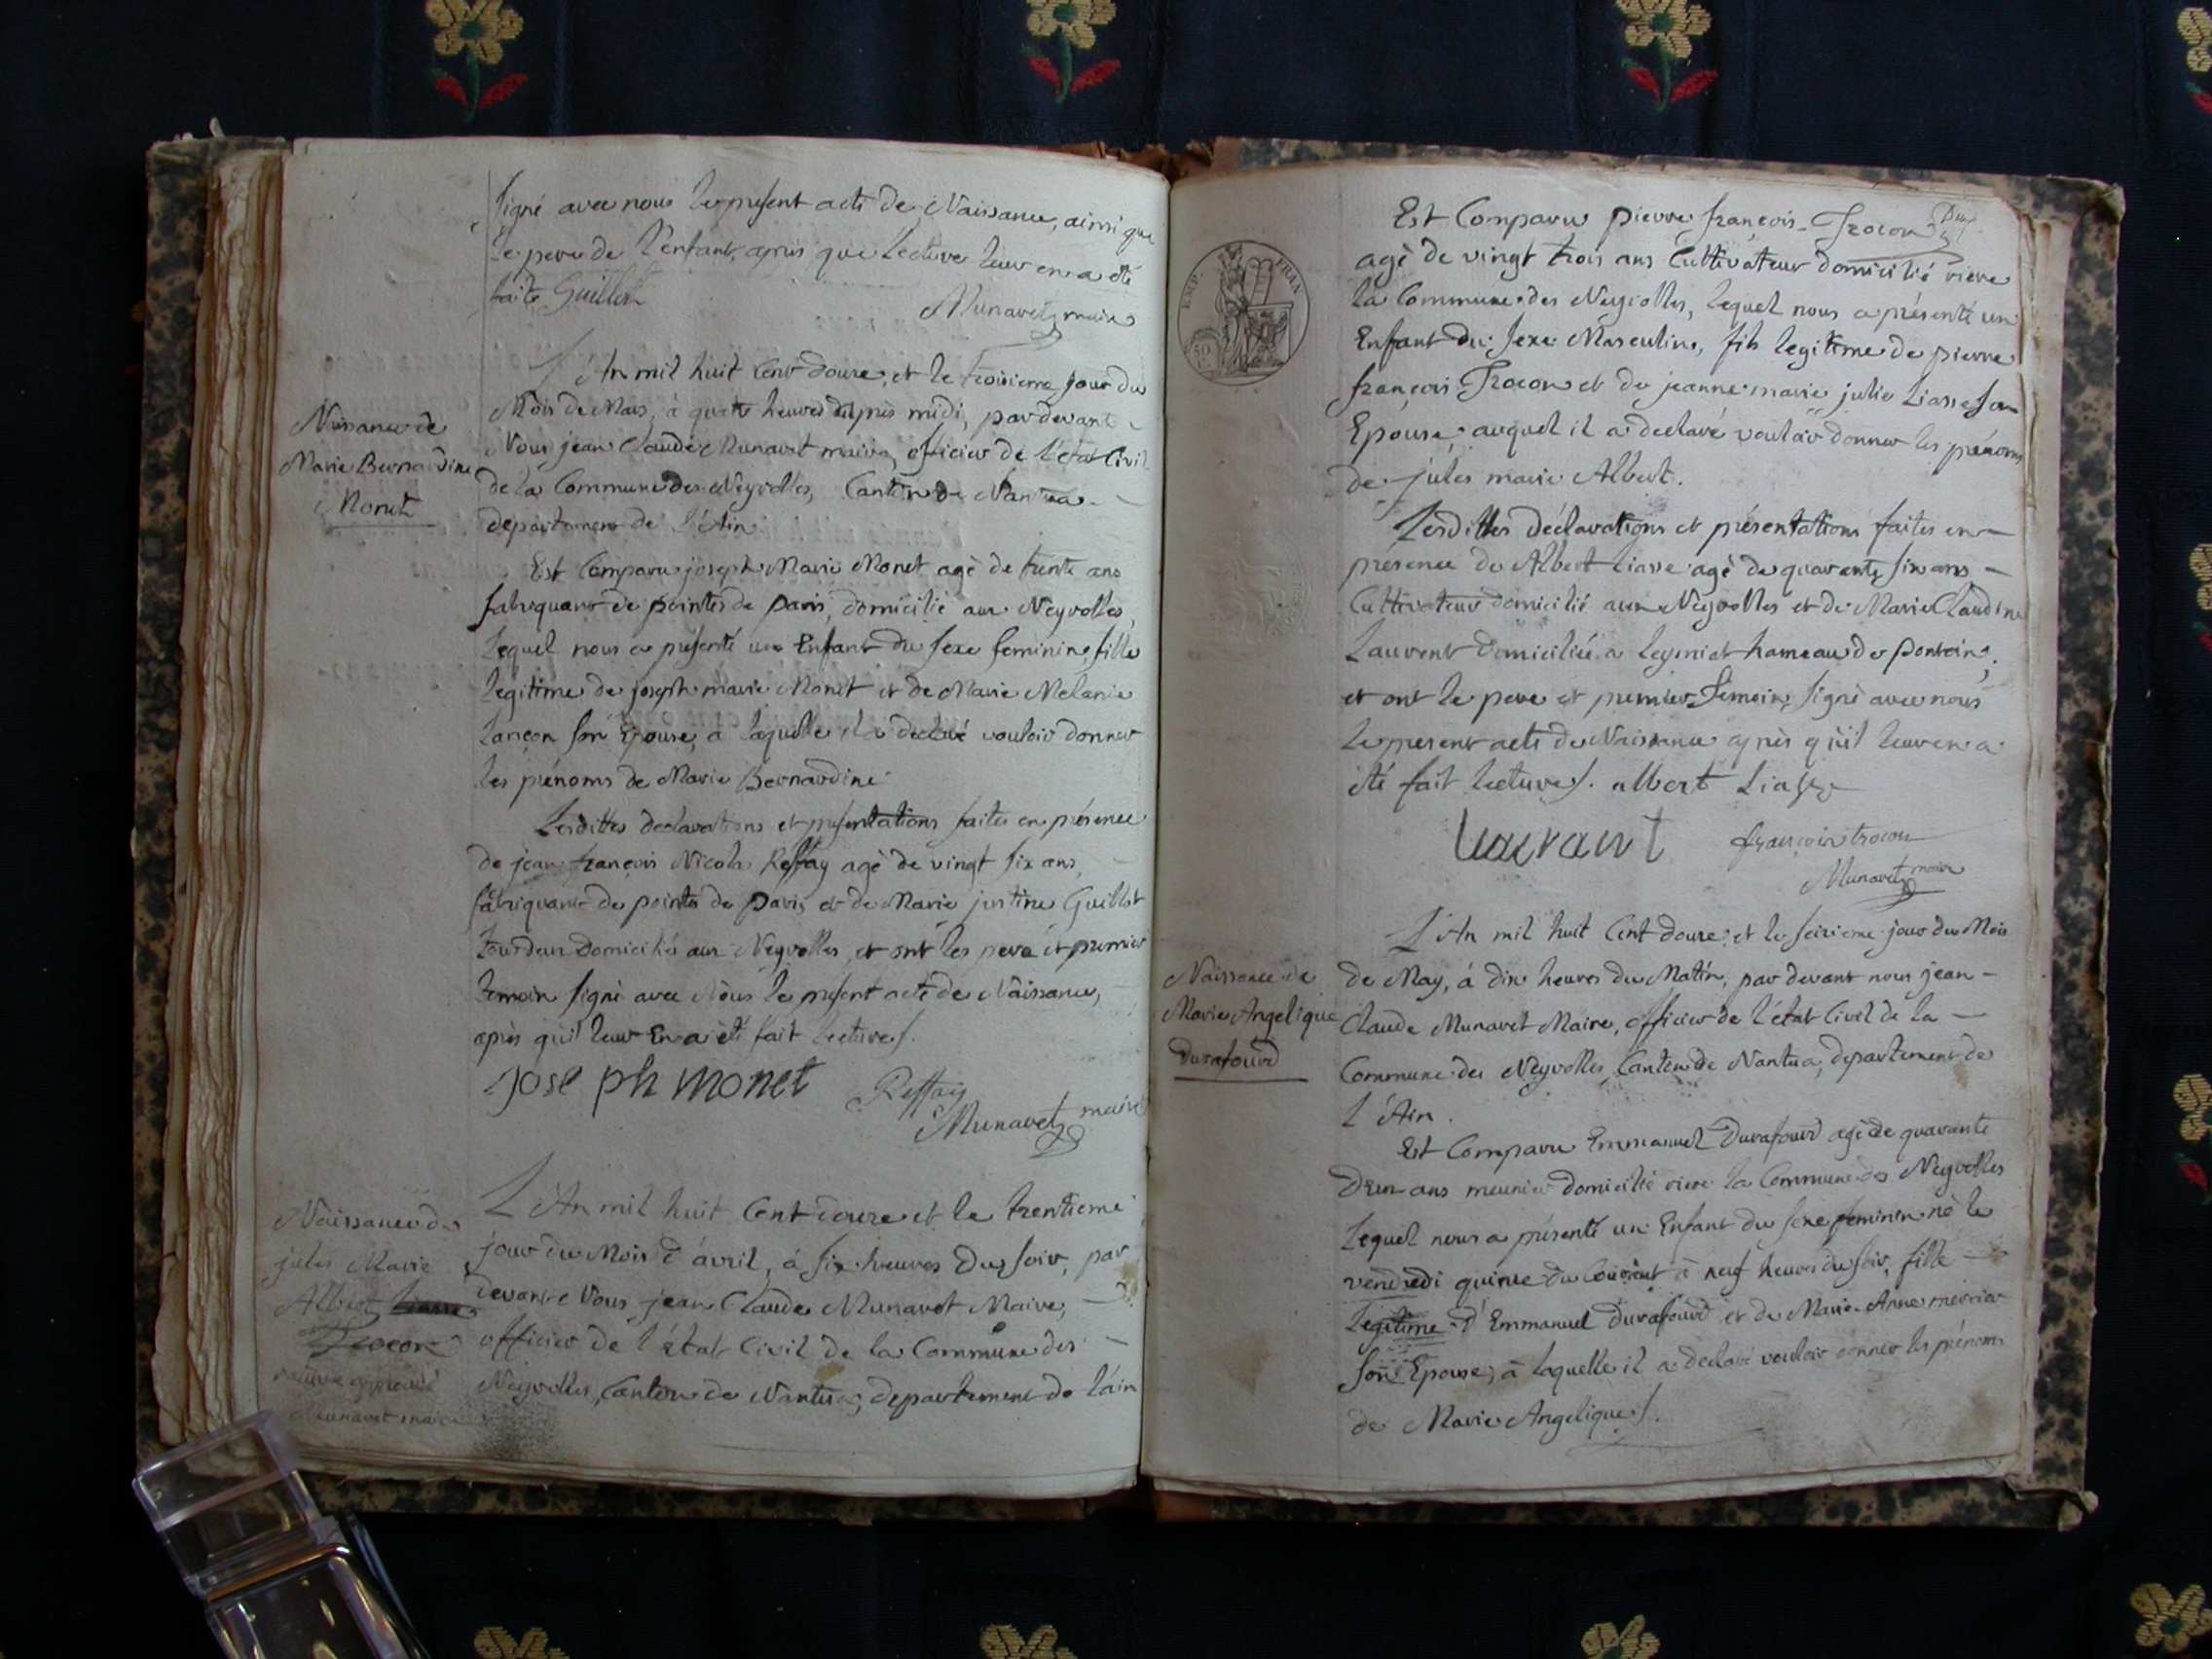 signé avec nous le present acte de Naissance, ainsi que
le pere de l'enfant, apris que lecture leur en a été
faite Guillot
Munavet maire
Naissance de
Marie Bernardine
Monet
L'An mil huit Cent douze, et le troisieme jour du
Mois de Mars, à quatre heures après midi, par devant
Nous jean Claude Munavet maire, officier de l'état Civil
de la Commune des Neyrolles, Canton de Nantua
département de l'Ain
Est Comparu joseph Marie Monet agé de trente ans
fabriquant de pointes de paris, domicilié aux Neyrolles,
lequel nous a présenté un Enfant du sexe feminin, fille
legitime de joseph marie Monet et de Marie Melanie
Lançon son Epouse, à laquelle il a declaré vouloir donner
les prénoms de Marie Bernardine
Lesdittes declarations et presentations faites en présence
de jean françois Nicolas Reffay agé de vingt six ans,
fabriquant de pointes de paris et de Marie justine Guillot
tous deux Domiciliés aux Neyrolles, et ont les pere et premier
temoin signé avec Nous le present acte de Naissance,
après qu'il leur En a été fait lecture /.
joseph monet Reffay
Munavet maire
Naissance de
jules Marie
Albert
Trocon
rature approuvé
Munavet maire
L'An mil huit Cent douze et le trentieme
jour du Mois d'avril, à six heures du soir, par
devant Nous jean Claude Munavet Maire,
officier de l'état Civil de la Commune des
Neyrolles, Canton de Nantua, departement de l'ain
EMP. FRAN.
Est Comparu pierre françois Trocon
agé de vingt trois ans Cultivateur domicilié riere
la Commune des Neyrolles, lequel nous a présenté un
Enfant du sexe Masculin, fils legitime de pierre
françois Trocon et de jeanne marie julie Liasse son
Epouse, auquel il a declaré vouloir donner les prénoms
de jules marie Albert.
Lesdittes déclarations et présentations faites en
présence de Albert Liasse agé de quarante six ans
Cultivateur domicilié aux Neyrolles et de Marie Claudine
Laurent domiciliée a hameau de
et ont le pere et premier Temoin signé avec nous
le present acte de Naissance après qu'il leur en a
été fait lecture /. albert Liasse
Laurant françois trocon
Munavet maire
Naissance de
Marie Angelique
Durafourd
L'An mil huit Cent douze, et le seizieme jour du Mois
de May, à dix heures du Matin, par devant nous jean
Claude Munavet Maire, officier de l'état Civil de la
Commune des Neyrolles, Canton de Nantua, departement de
l'Ain.
Est Comparu Emmanuel Durafourd agé de quarante
deux ans meunier domicilié riere la Commune des Neyrolles
Lequel nous a présenté un Enfant du sexe feminin né le
vendredi quinze du Courant à neuf heures du soir, fille
Legitime d'Emmanuel Durafourd et de Marie Anne
son Epouse, à laquelle il a declaré vouloir donner les prénoms
de Marie Angelique /.